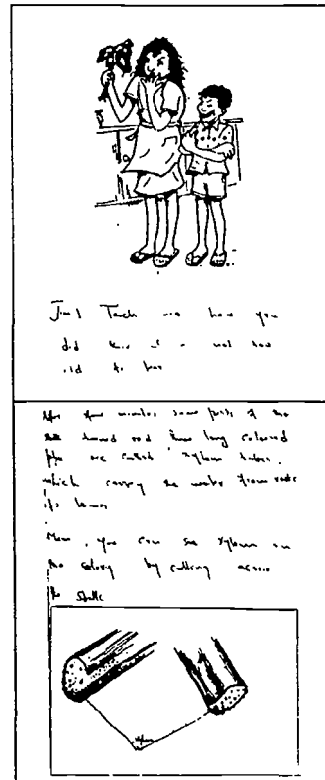 Jim! Teach me how you
did this I a not too
old to
few minutes some parts of the
turned red these long colored
are called xylem tubes.
which carry the water from
its
Mom, you can see xylem in
the celery by cutting across
the stalk
xylem